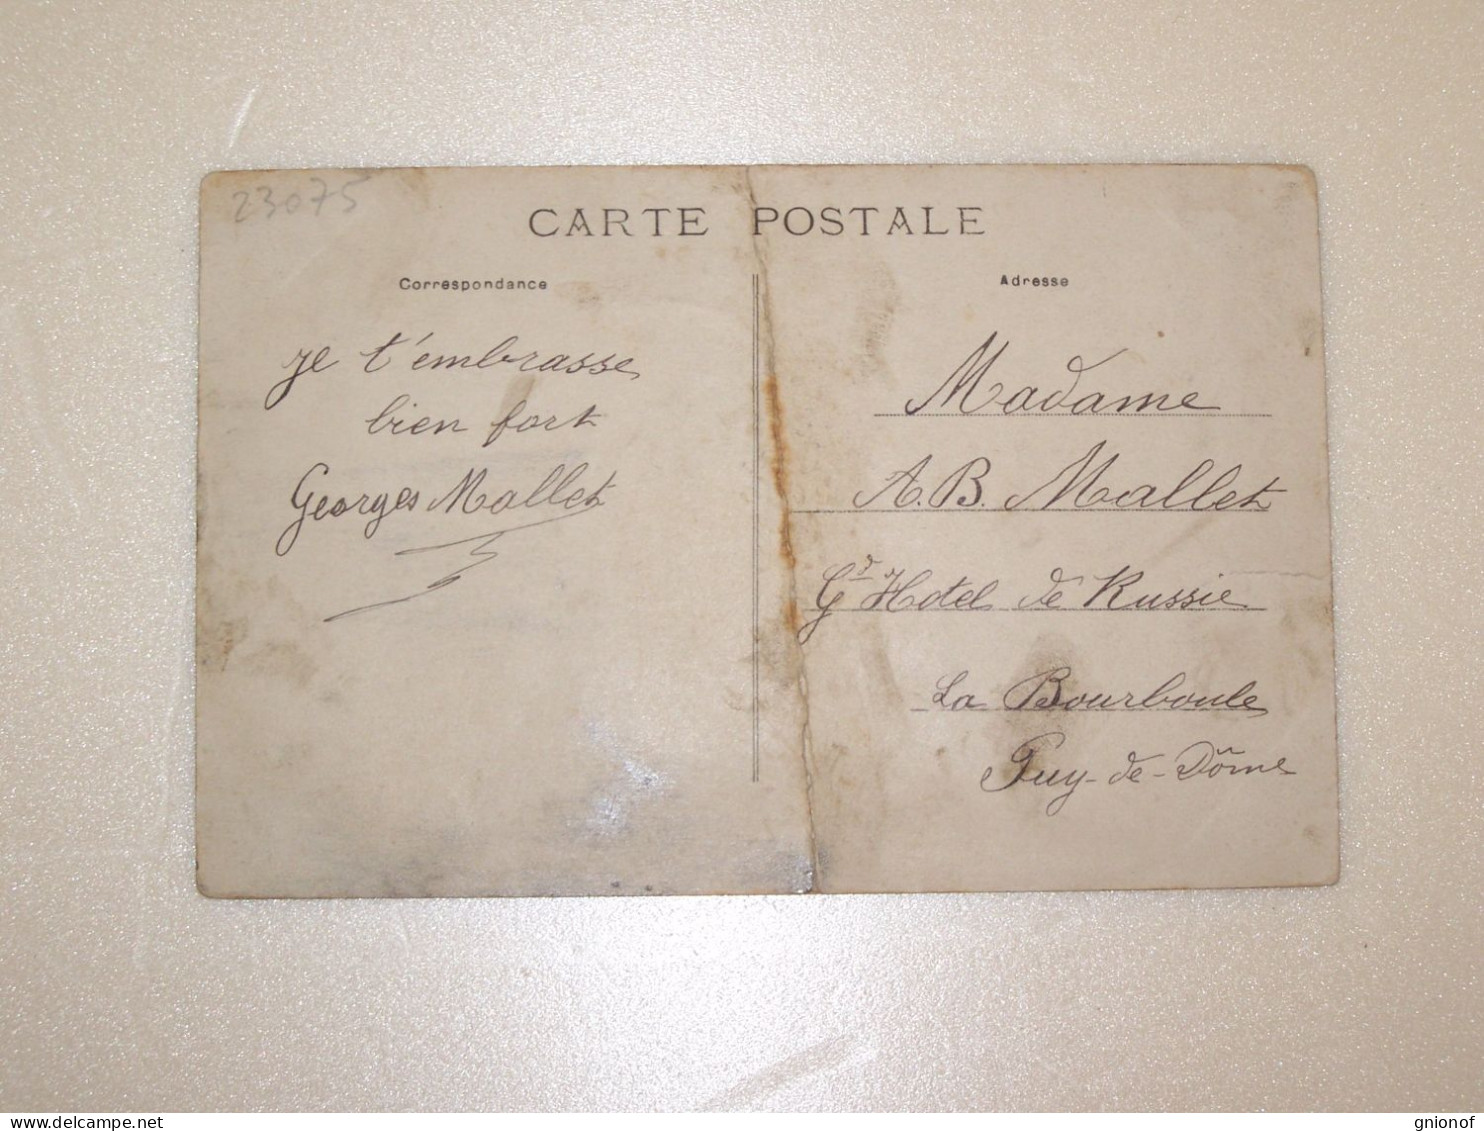 23075
CARTE POSTALE
Correspondance
je t'embrasse
bien fort
Georges Mallet
Adresse
Madame
A. B. Mallet
Gd Hotel de Russie
La Bourboule
Puy-de-Dôme
gnionof